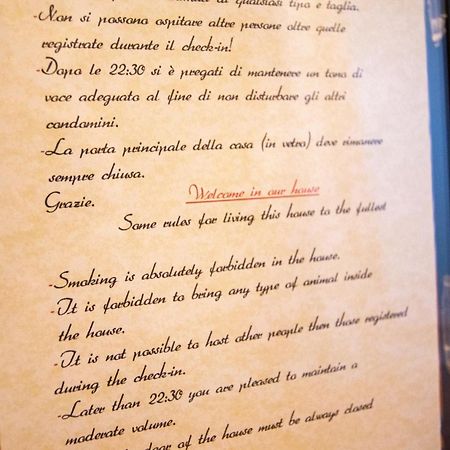 di qualsiasi tipo e taglia.
-Non si possono ospitare altre persone oltre quelle
registrate durante il check-in!
-Dopo le 22:30 si è pregati di mantenere un tono di
voce adeguato al fine di non disturbare gli altri
condomini.
-La porta principale della casa (in vetro) deve rimanere
sempre chiusa.
Grazie.
Welcome in our house
Some rules for living this house to the fullest
-Smoking is absolutely forbidden in the house.
-It is forbidden to bring any type of animal inside
the house.
-It is not possible to host other people then those registered
during the check-in.
-Later than 22:30 you are pleased to maintain a
moderate volume.
door of the house must be always closed